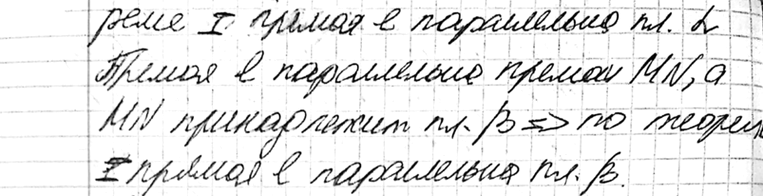 реме I прямая в параллельна пл. α
Прямая в параллельна прямой MN, а
MN принадлежит пл. β => по теореме
I прямая в параллельна пл. β